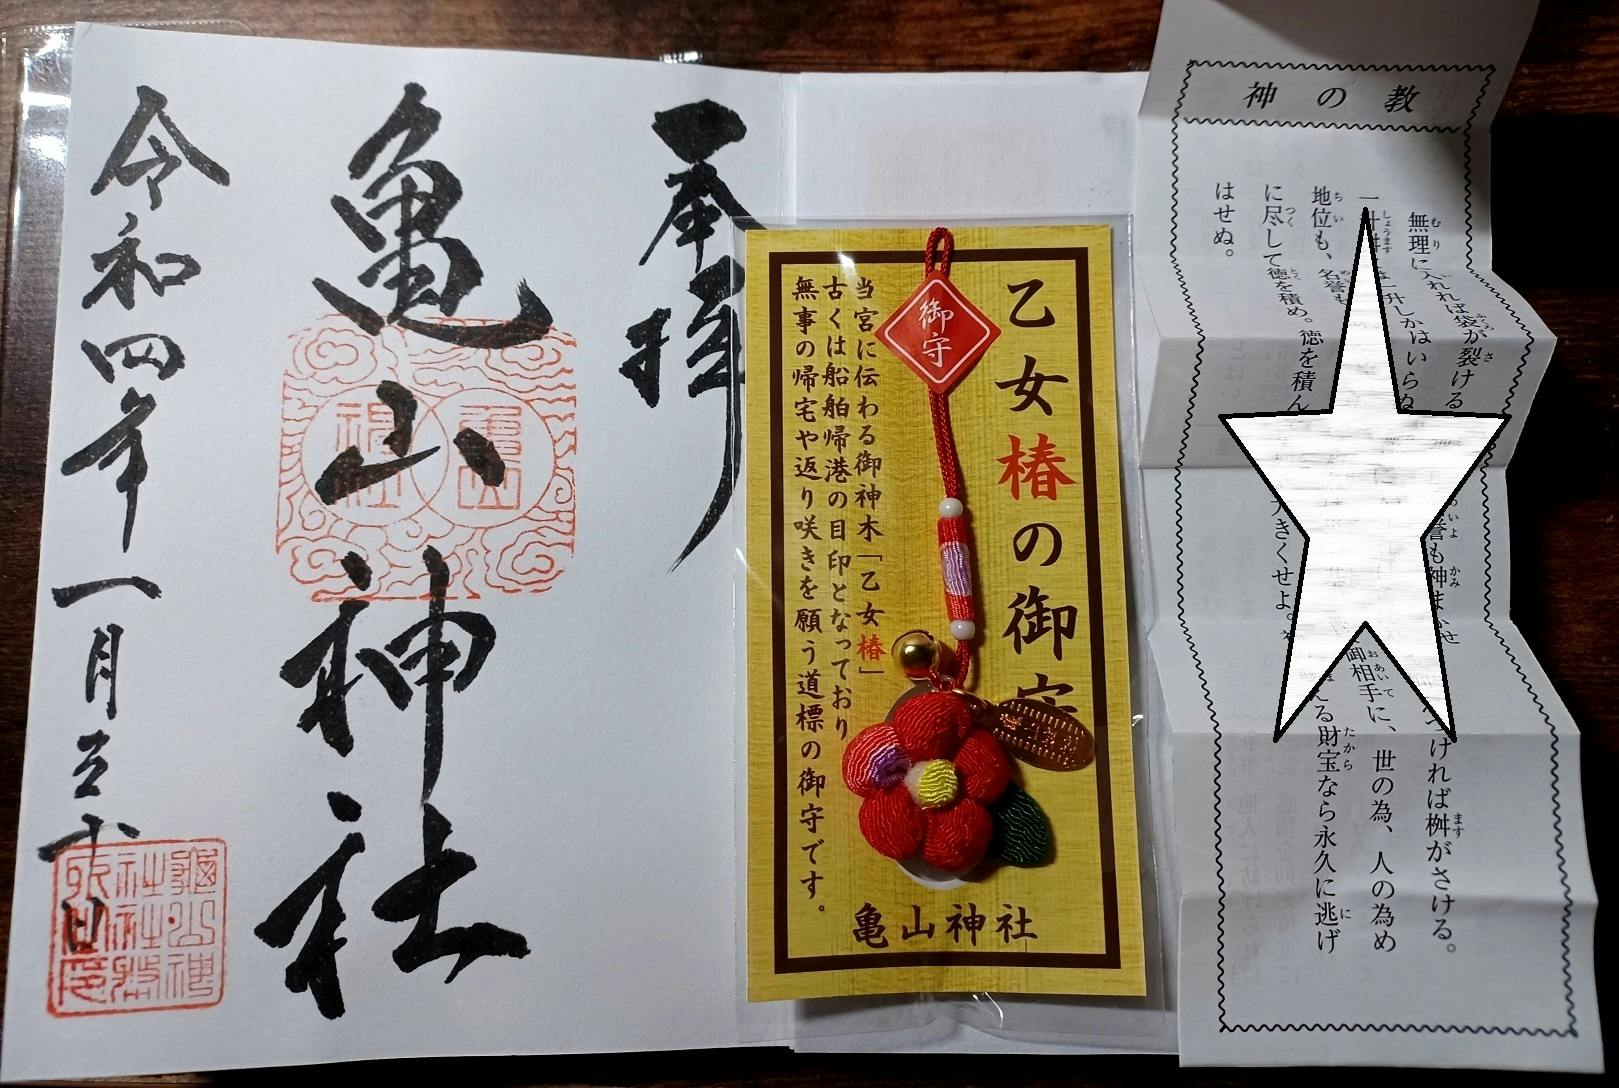 奉拝
亀山神社
令和四年一月三十日
亀山
神社
亀山神
社社務
所之印
御守
乙女椿の御守
当宮に伝わる御神木「乙女椿」
古くは船舶帰港の目印となっており
無事の帰宅や返り咲きを願う道標の御守です。
亀山神社
神の教
無理に入れれば袋が裂ける
つければ桝がさける。
一升桝は一升しかはいらぬ
誉も神まかせ
地位も、名誉も
御相手に、世の為、人の為め
に尽して徳を積め。徳を積ん
る財宝なら永久に逃げ
はせぬ。
大きくせよ。